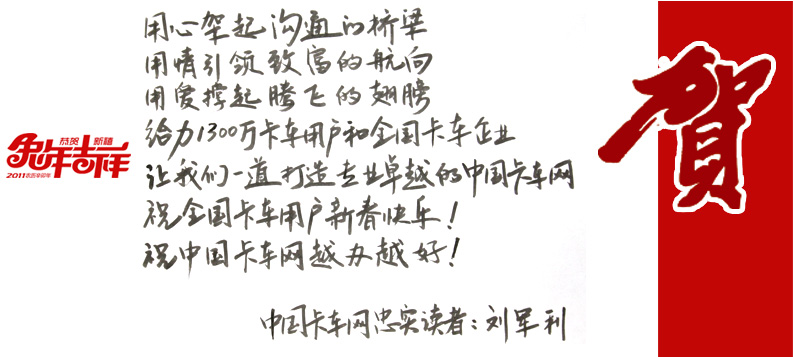 用心架起沟通的桥梁
用情引领致富的航向
用爱撑起腾飞的翅膀
给力1300万卡车用户和全国卡车企业
恭贺 新禧
兔年吉祥
2011农历辛卯年
让我们一道打造专业卓越的中国卡车网
祝全国卡车用户新春快乐！
祝中国卡车网越办越好！
中国卡车网忠实读者：刘军利
賀